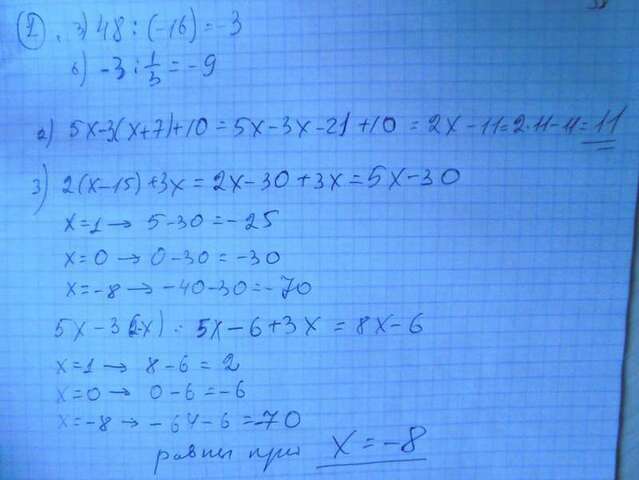 1. з) 48 : (-16) = -3
б) -3 : 1/3 = -9
2) 5x-3(x+7)+10 = 5x-3x-21+10 = 2x-11 = 2·11-11 = 11
3) 2(x-15)+3x = 2x-30+3x = 5x-30
x=1 → 5-30 = -25
x=0 → 0-30 = -30
x=-8 → -40-30 = -70
5x-3(2-x) = 5x-6+3x = 8x-6
x=1 → 8-6 = 2
x=0 → 0-6 = -6
x=-8 → -64-6 = -70
равны при x = -8